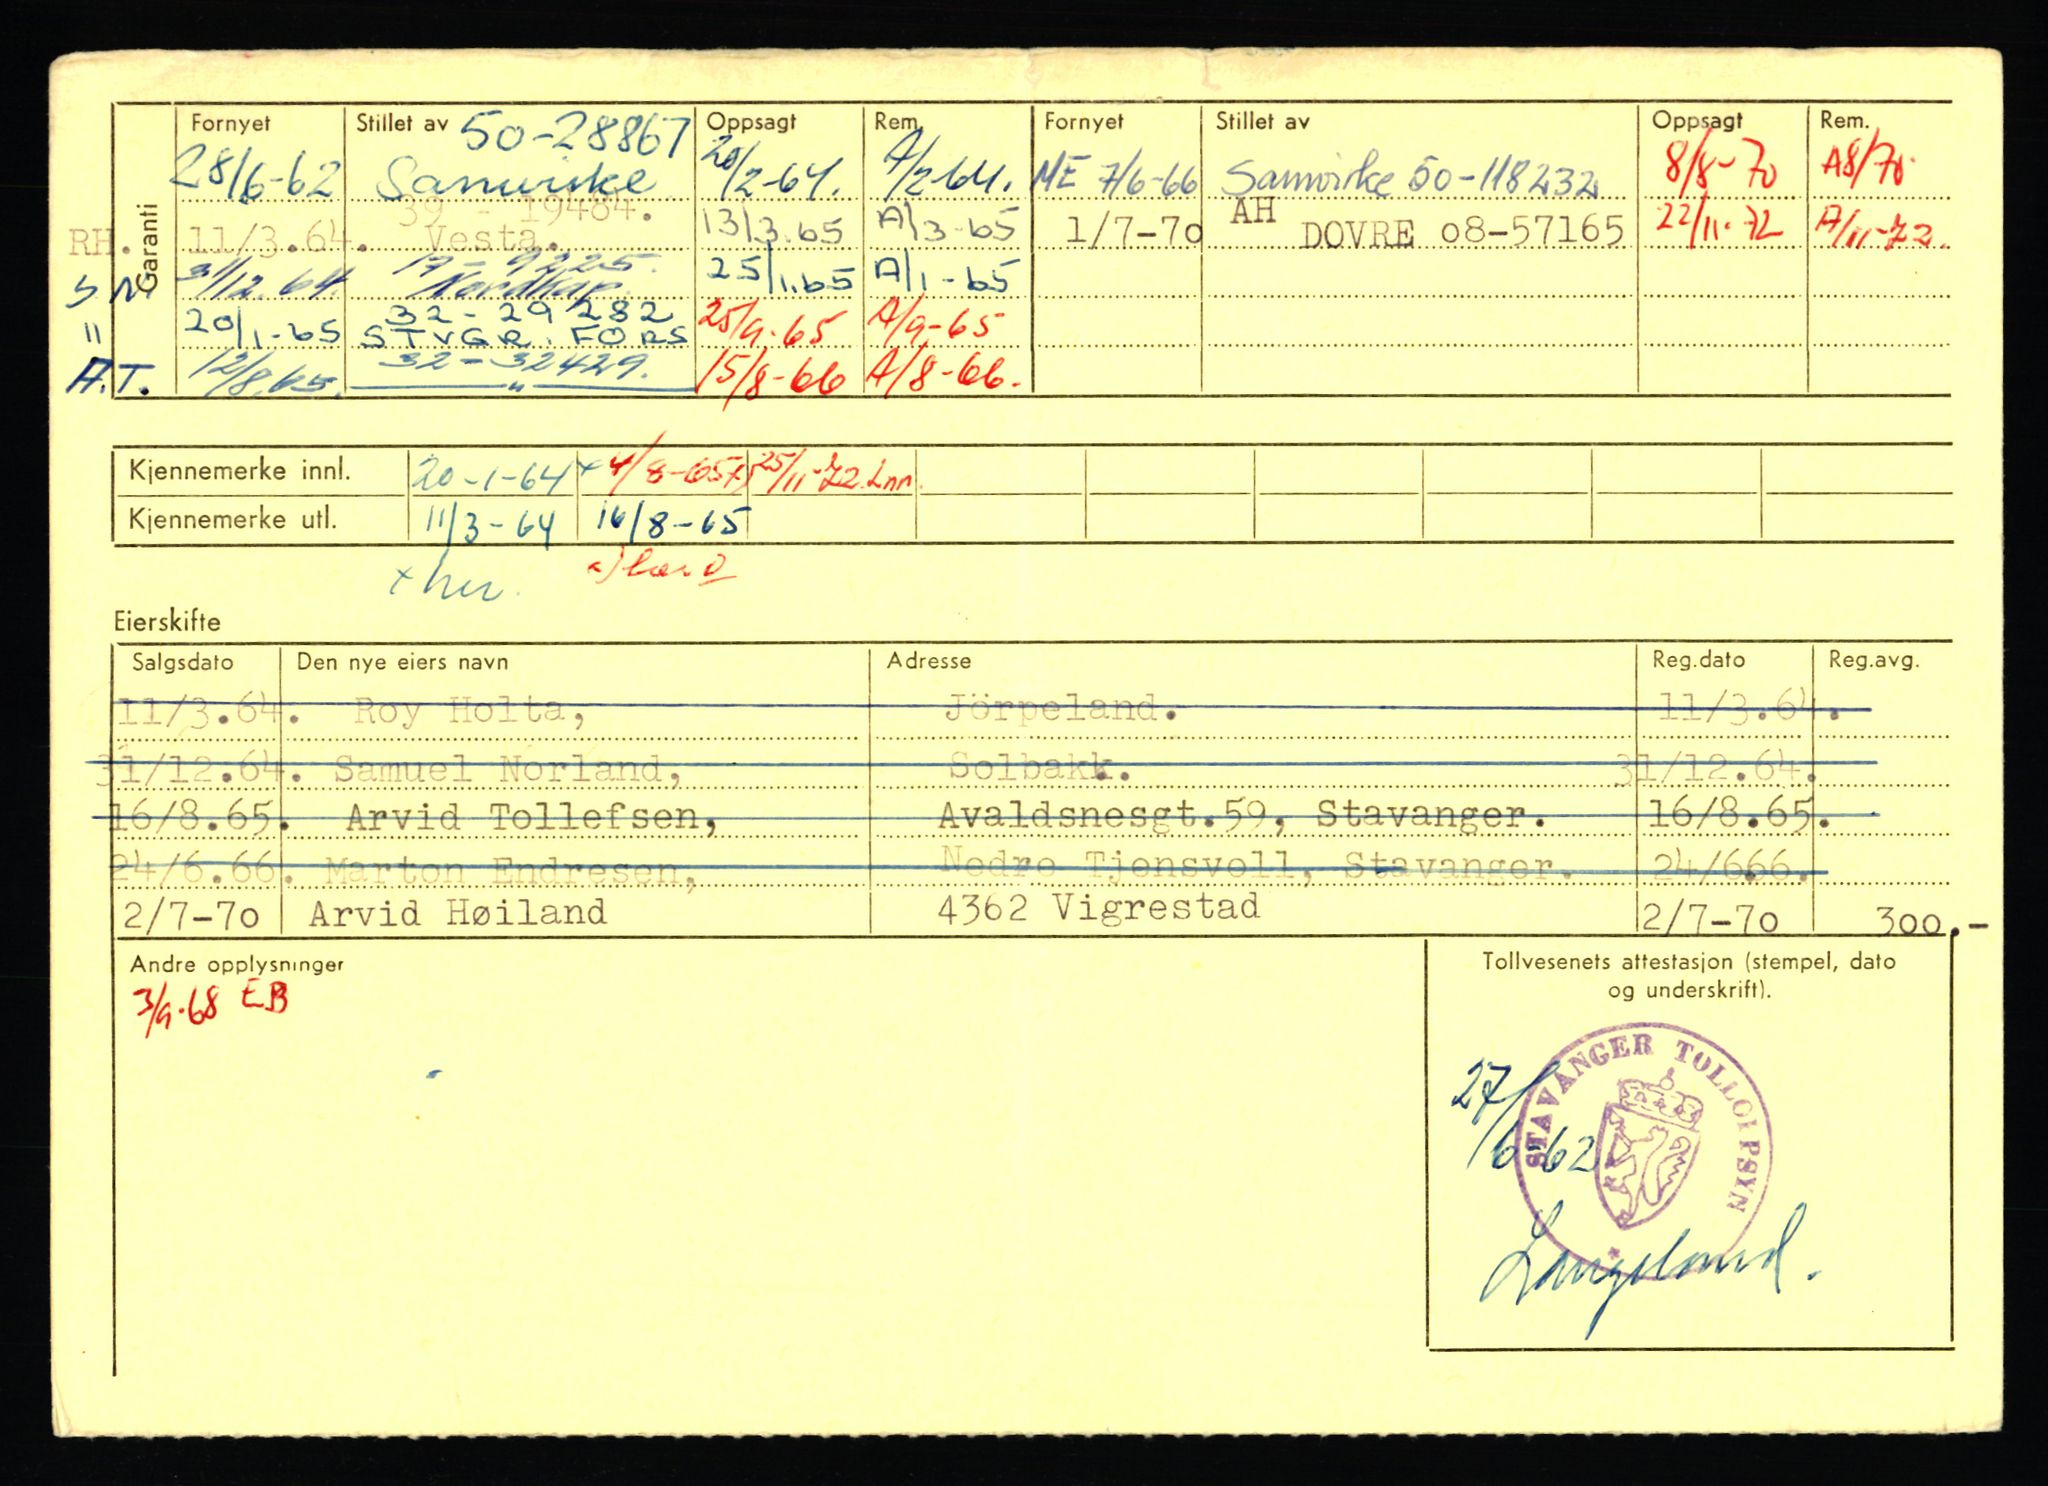 Garanti
Fornyet Stillet av Oppsagt Rem. Fornyet Stillet av Oppsagt Rem.
50-28867
28/6-62 Samvirke 20/2-64. A/2-64. ME 7/6-66 Samvirke 50-118232 8/8-70 A8/70.
39 - 19484.
RH. 11/3.64. Vesta. 13/3.65 A/3-65 1/7-70 AH DOVRE o8-57165 22/11-72 A/11-72.
17-9225.
S.N. 31/12.64. Nordkap. 25/1.65 A/1-65
32-29282
" 20/1-65 STVGR. FORS 25/9.65 A/9-65
32-32429.
A.T. 12/8.65. " 15/8-66 A/8-66.
Kjennemerke innl. 20-1-64 x 4/8-65 x) 25/11-72 Inn.
Kjennemerke utl. 11/3-64 16/8-65
x her.
Eierskifte
Salgsdato Den nye eiers navn Adresse Reg.dato Reg.avg.
11/3.64. Roy Holta, Jörpeland. 11/3.64.
31/12.64. Samuel Norland, Solbakk. 31/12.64.
16/8.65. Arvid Tollefsen, Avaldsnesgt.59, Stavanger. 16/8.65.
24/6.66. Marton Endresen, Nedre Tjensvoll, Stavanger. 24/666.
2/7-70 Arvid Høiland 4362 Vigrestad 2/7-70 300.-
Andre opplysninger
3/9.68 EB
Tollvesenets attestasjon (stempel, dato
og underskrift).
STAVANGER TOLLOPPSYN
27/6-62
Langeland.